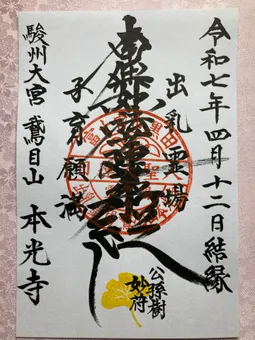 令和七年四月十二日結縁
出乳霊場
南無妙法蓮華経
子育願満
公孫樹
妙符
駿州大宮 鵞目山 本光寺